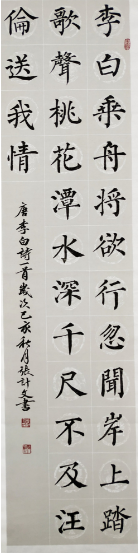 李白乘舟將欲行忽聞岸上踏
歌聲桃花潭水深千尺不及汪
倫送我情
唐李白詩一首歲次己亥秋月張計文書